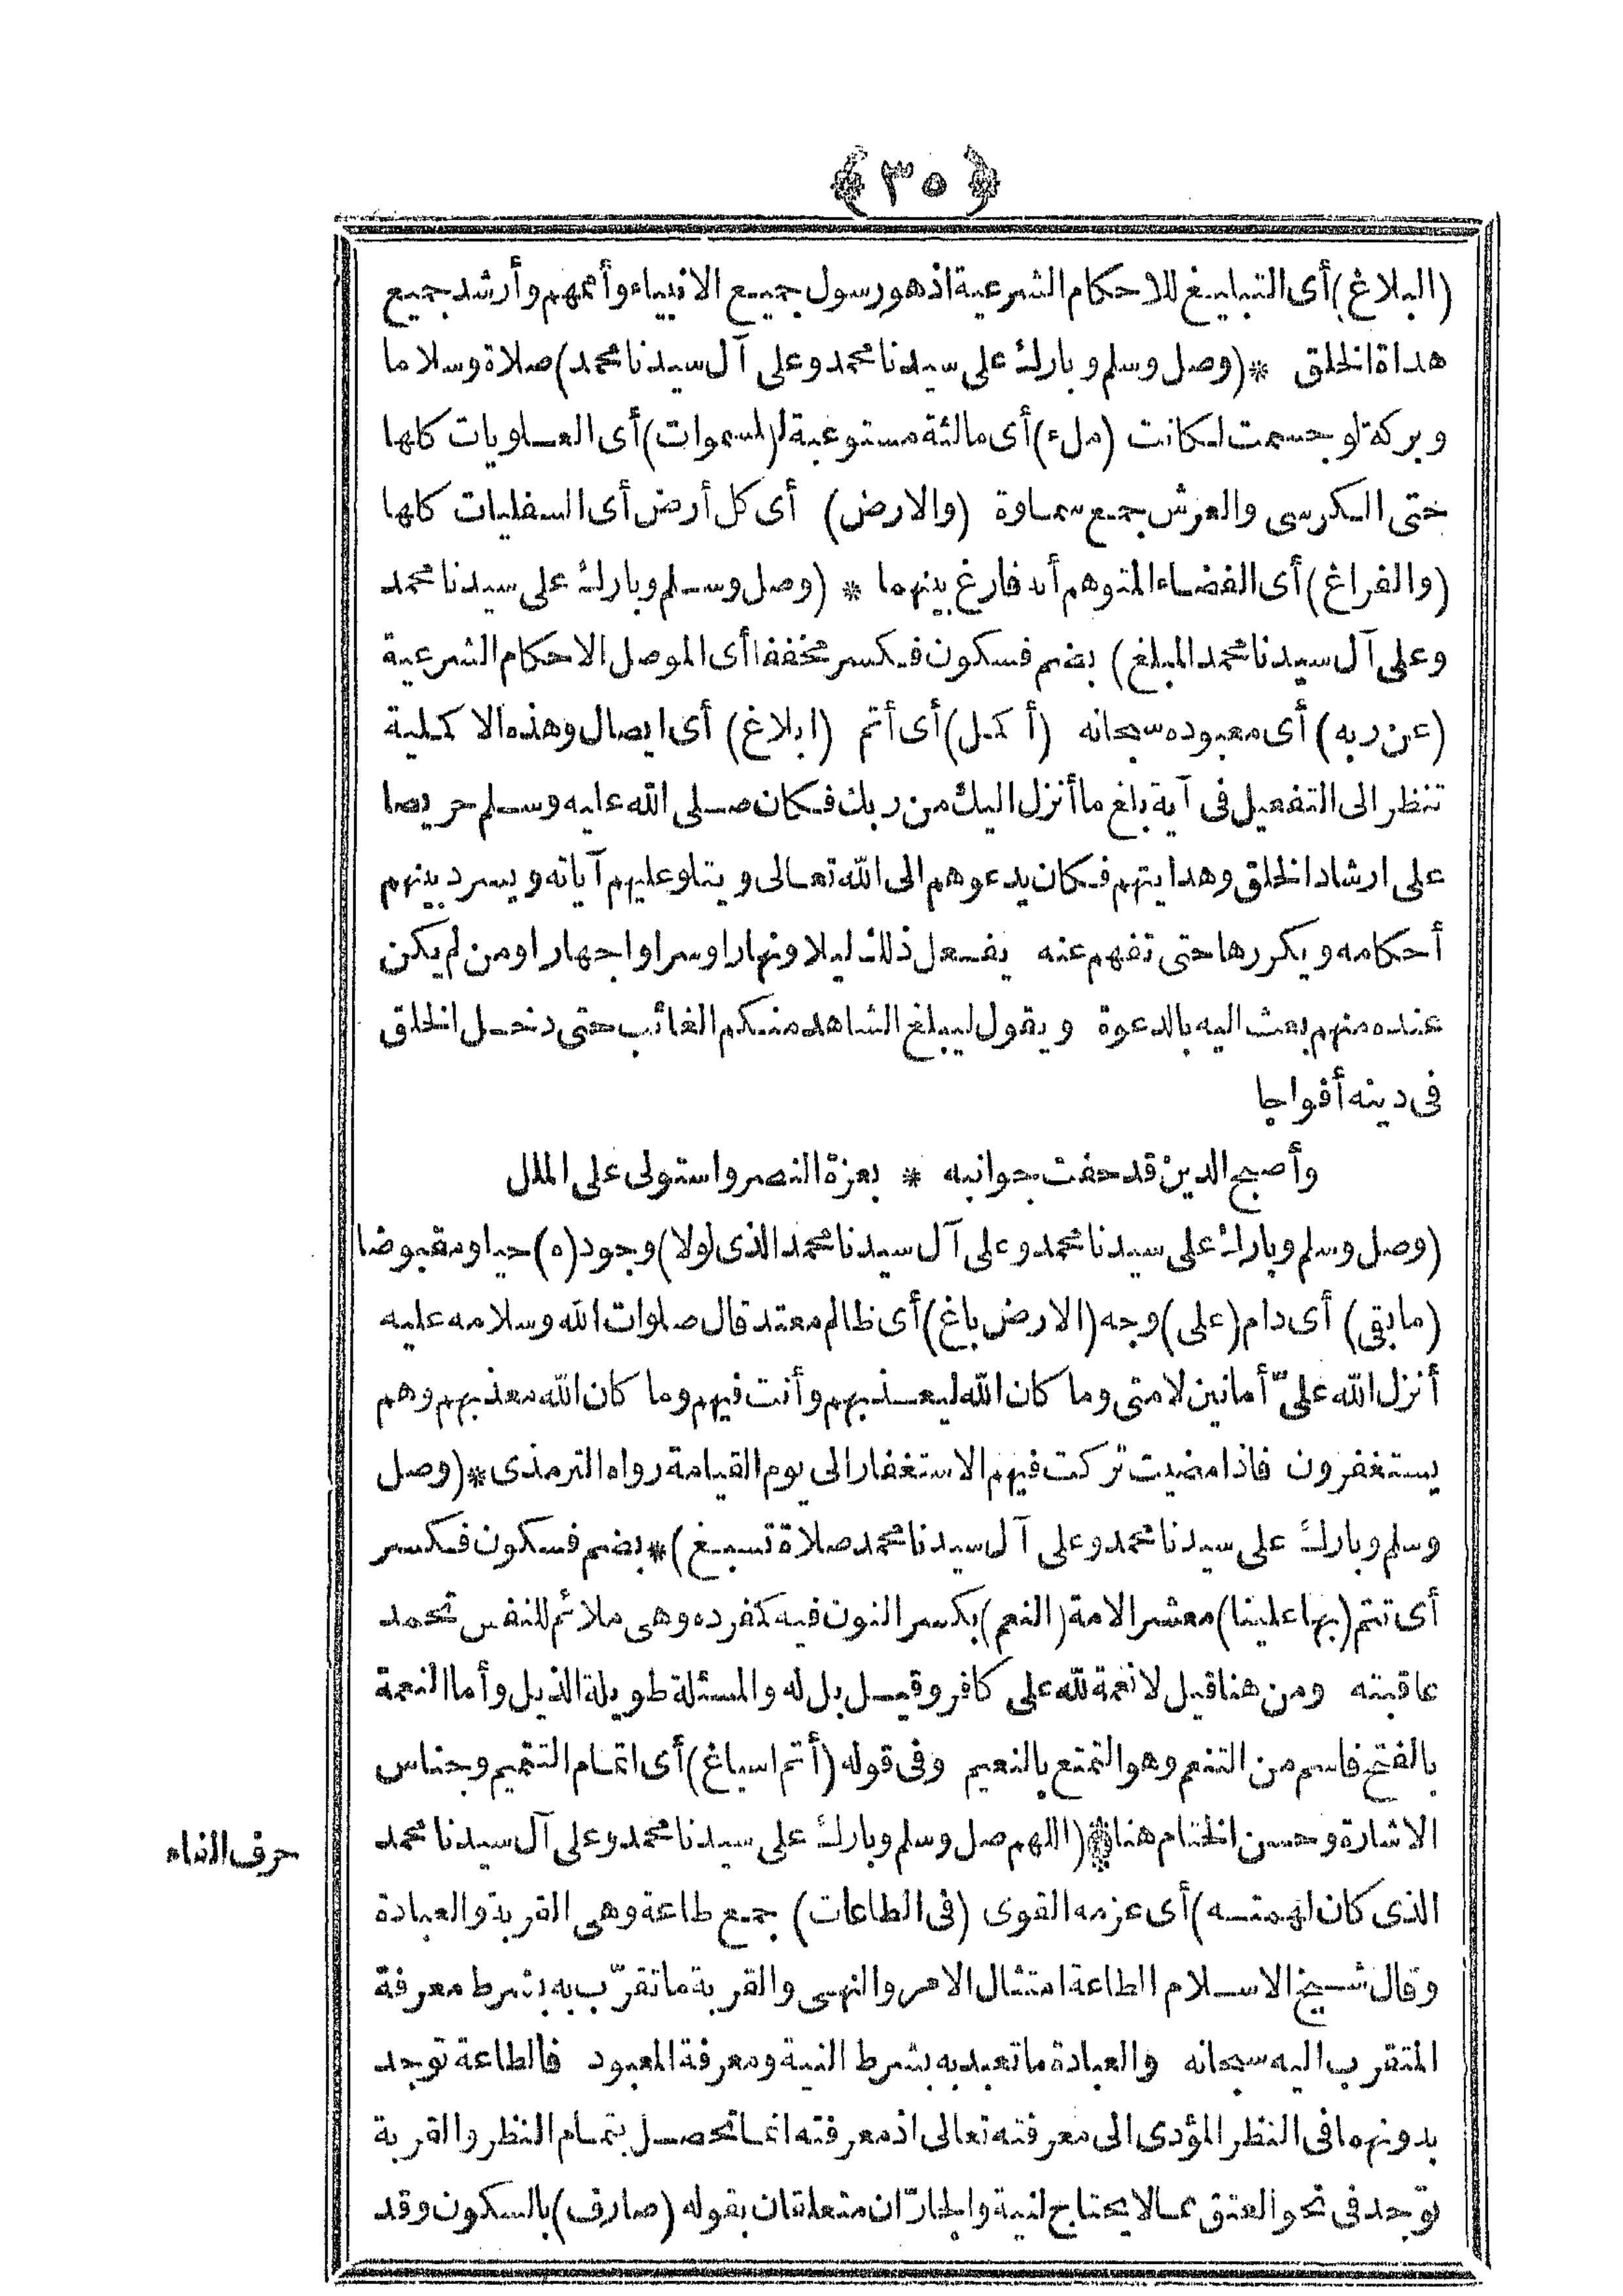 ﴿٣٥﴾
(البلاغ) أى التبليغ للاحكام الشرعية اذ هو رسول جميع الانبياء وأممهم وأرشد جميع
هداة الخلق * (وصل وسلم وبارك على سيدنا محمد وعلى آل سيدنا محمد) صلاة وسلاما
وبركة لو جسمت لكانت (ملء) أى مالئة مستوعبة ل(لسموات) أى العلويات كلها
حتى الكرسى والعرش جمع سماوة (والارض) أى كل أرض أى السفليات كلها
(والفراغ) أى الفضاء المتوهم أنه فارغ بينهما * (وصل وسلم وبارك على سيدنا محمد
وعلى آل سيدنا محمد المبلغ) بضم فسكون فكسر مخففا أى الموصل الاحكام الشرعية
(عن ربه) أى معبوده سبحانه (أكمل) أى أتم (ابلاغ) أى ايصال وهذه الاكملية
تنظر الى التفعيل فى آية بلغ ما أنزل اليك من ربك فكان صلى الله عليه وسلم حريصا
على ارشاد الخلق وهدايتهم فكان يدعوهم الى الله تعالى ويتلو عليهم آياته ويسرد بينهم
أحكامه ويكررها حتى تفهم عنه يفعل ذلك ليلا ونهارا وسرا واجهارا ومن لم يكن
عنده منهم بعث اليه بالدعوة ويقول ليبلغ الشاهد منكم الغائب حتى دخل الخلق
فى دينه أفواجا
وأصبح الدين قد حفت جوانبه * بعزة النصر واستولى على الملل
(وصل وسلم وبارك على سيدنا محمد وعلى آل سيدنا محمد الذى لولا) وجود (ه) حيا ومقبوضا
(ما بقى) أى دام (على) وجه (الارض باغ) أى ظالم معتد قال صلوات الله وسلامه عليه
أنزل الله علىّ أمانين لامتى وما كان الله ليعذبهم وأنت فيهم وما كان الله معذبهم وهم
يستغفرون فاذا مضيت تركت فيهم الاستغفار الى يوم القيامة رواه الترمذى * (وصل
وسلم وبارك على سيدنا محمد وعلى آل سيدنا محمد صلاة تسبغ) * بضم فسكون فكسر
أى تتم (بها علينا) معشر الامة (النعم) بكسر النون فيه كمفرده وهى ملائم للنفس تحمد
عاقبته ومن هنا قيل لا نعمة لله على كافر وقيل بل له والمسئلة طويلة الذيل وأما النعمة
بالفتح فاسم من التنعم وهو التمتع بالنعيم وفى قوله (أتم اسباغ) أى اتمام التتميم وجناس
الاشارة وحسن الختام هنا * (اللهم صل وسلم وبارك على سيدنا محمد وعلى آل سيدنا محمد
حرف الفاء
الذى كان لهمته) أى عزمه القوى (فى الطاعات) جمع طاعة وهى القربة والعبادة
وقال شيخ الاسلام الطاعة امتثال الامر والنهى والقربة ما تقرّب به بشرط معرفة
المتقرب اليه سبحانه والعبادة ما تعبد به بشرط النية ومعرفة المعبود فالطاعة توجد
بدونهما فى النظر المؤدى الى معرفته تعالى اذ معرفته انما تحصل بتمام النظر والقربة
توجد فى نحو العتق مما لا يحتاج لنية والجارّان متعلقان بقوله (صارف) بالسكون وقد